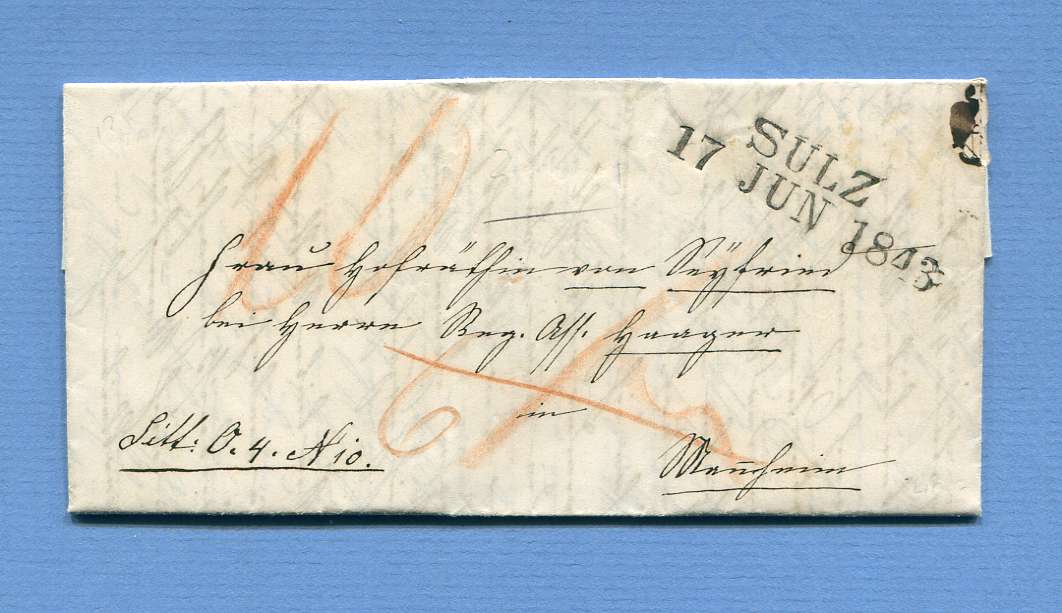 SULZ
17 JUN 1843
10
Frau Hofräthin von Seÿfried
bei Herrn Reg. Ass. Haager
6
in
Litt: O. 4. N 10.
Mannheim